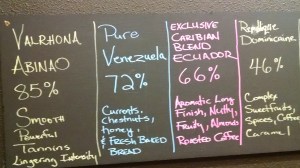 VALRHONA
ABINAO
85%
Smooth
Powerful
Tannins
Lingering Intensity
Pure
Venezuela
72%
Currents,
chestnuts,
honey,
& FRESH BAKED
BREAD
EXCLUSIVE
CARIBIAN
BLEND
ECUADOR
66%
Aromatic Long
Finish, Nutty,
Fruity, Almond,
Roasted Coffee
Dominicaine
46%
Complex
Sweet fruits,
Spices, Coffee
Caramel